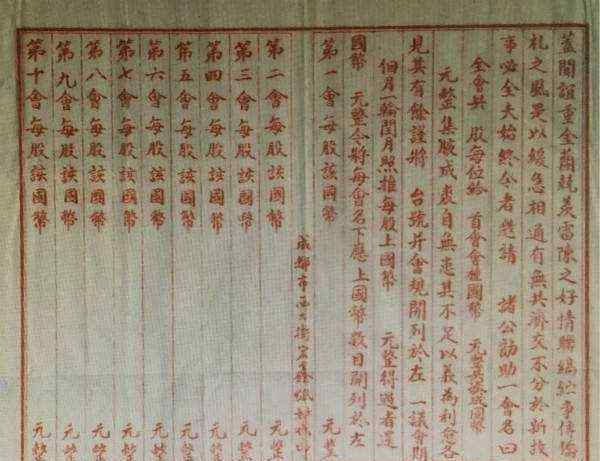 蓋聞誼重金蘭競羨雷陳之好情聯縞紵事傳僑
札之風是以緩急相通有無共濟交不分於新故
事必全夫始終今者懇請　諸公勷助一會名曰
全會共　股每位給　首會會種國幣　元整共湊成國幣
元整集腋成裘自無患其不足以義為利應各
見其有餘謹將　台號并會規開列於左　一議會期
個月一輪閏月照推每股上國幣　元整得過者還
國幣　元整今將每會名下應上國幣數目開列於左
第一會每股該國幣　元整
成都市西大街　印
第二會每股該國幣　元整
第三會每股該國幣　元整
第四會每股該國幣　元整
第五會每股該國幣　元整
第六會每股該國幣　元整
第七會每股該國幣　元整
第八會每股該國幣　元整
第九會每股該國幣　元整
第十會每股該國幣　元整